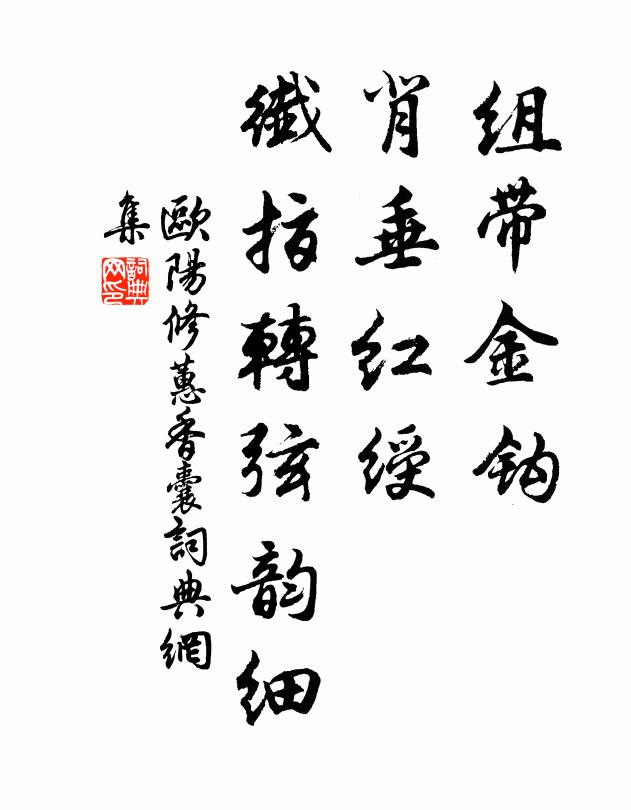 组带金钩
背垂红绶
纖指轉弦韵细
歐陽修蕙香囊詞典網
集
詞典
网印